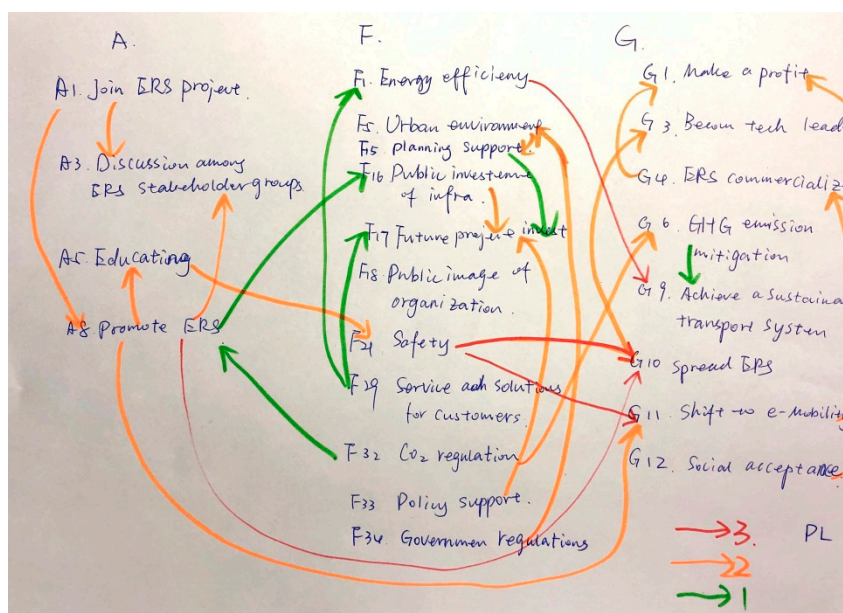 A.
A1. Join ERS project.
A3. Discussion among
ERS stakeholder groups
A5. Educating
A8 Promote ERS
F.
F1. Energy efficieny
F5. Urban environment
F15. planning support.
F16 Public investment
of infra.
F17 Future project invest
F18. Public image of
organization.
Safety
Service and solutions
for customers.
F32 Co2 regulation
F33 Policy support.
F34. Governmen regulations
G.
G1. Make a profit
G3. Becom tech lead
G4. ERS commercializ
G6. GHG emission
mitigation
G9. Achieve a sustaina
transport system
G10 Spread ERS
G11. Shift to e-mobility
G12. Social acceptance
3. PL
2
1